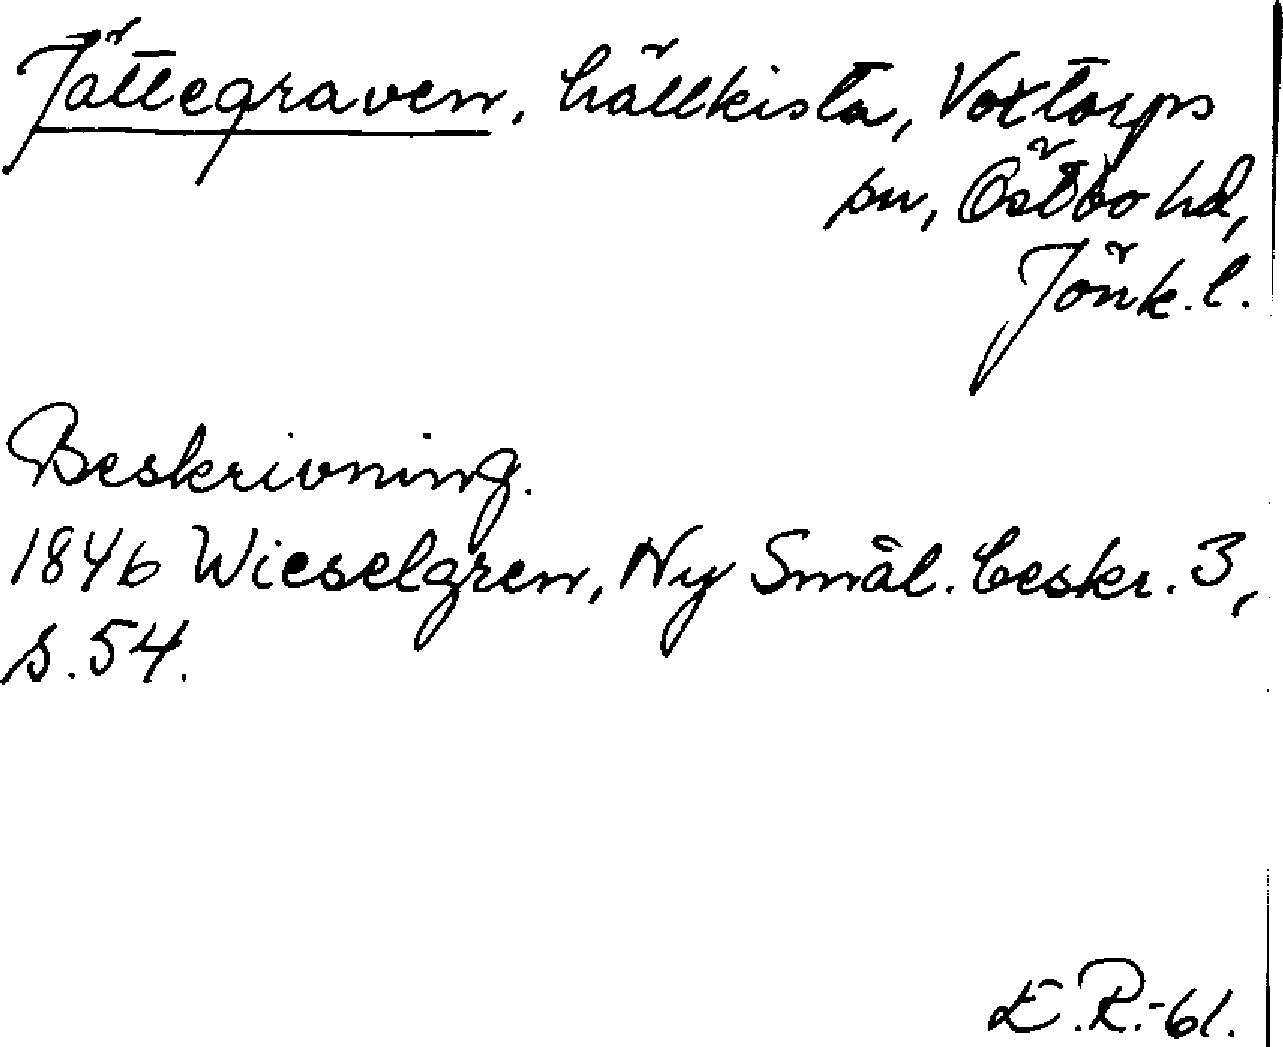 Jättegraven, hällkista, Voxtorps
sn, Östbo hd,
Jönk. l.
Beskrivning.
1846 Wieselgren, Ny Smål. beskr. 3,
s. 54.
E.R.-61.